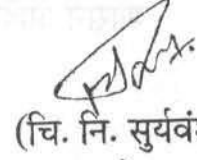 (चि. नि. सुर्यवं